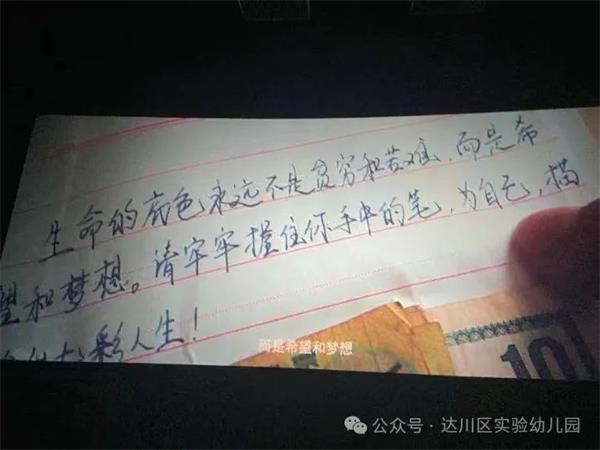 生命的底色永远不是贫穷和苦难,而是希
望和梦想。请牢牢握住你手中的笔,为自己,描
彩人生!
而是希望和梦想
10
公众号·达川区实验幼儿园